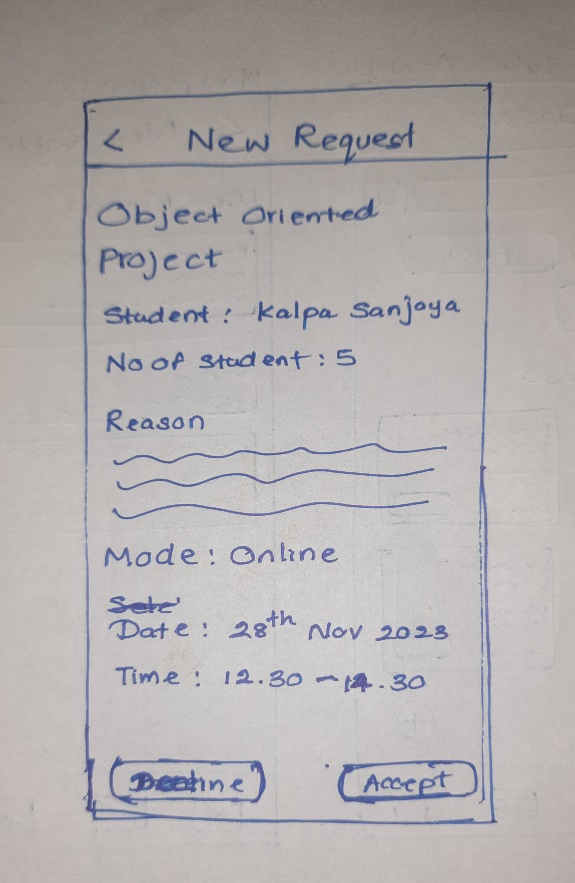 < New Request
Object Oriented
Project
Student : Kalpa Sanjaya
No of student : 5
Reason
Mode : Online
Date : 28th Nov 2023
Time : 12.30 - 14.30
Decline
Accept